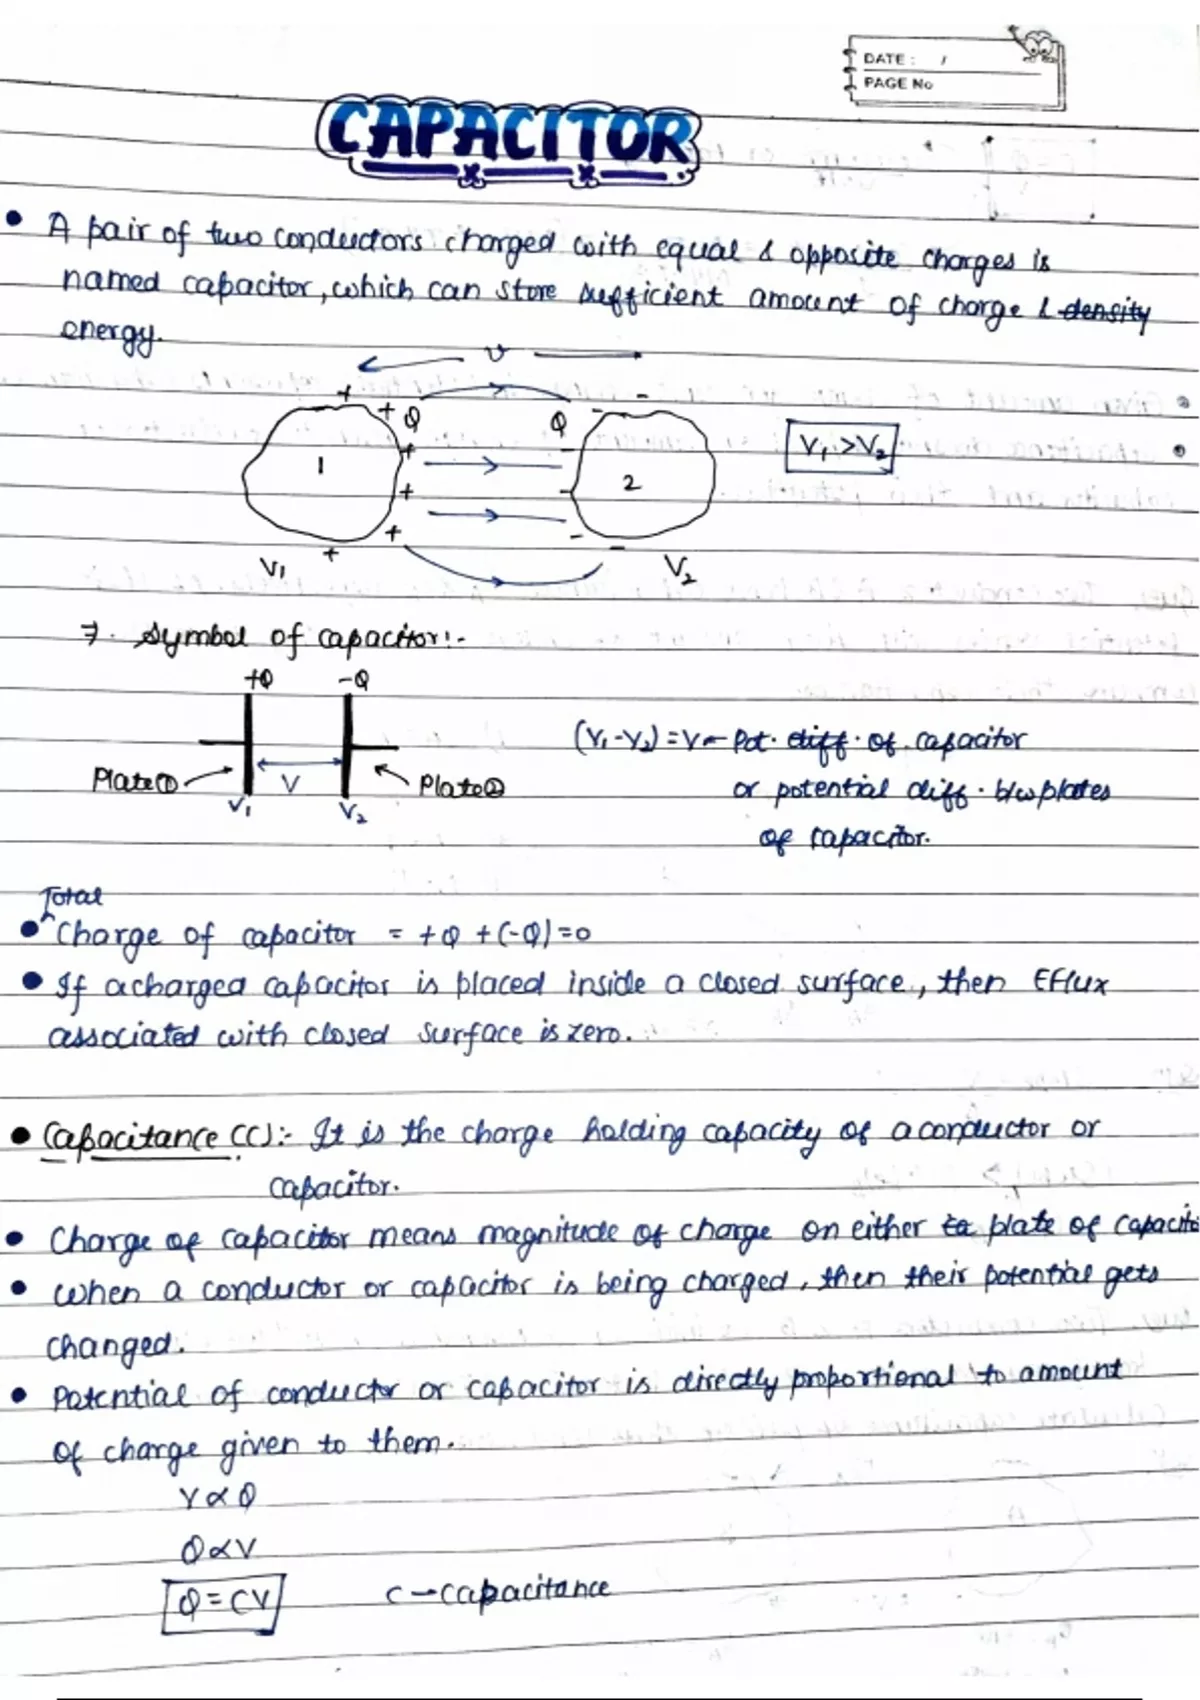 DATE : /
PAGE No
CAPACITOR
• A pair of two conductors charged with equal & opposite charges is
named capacitor, which can store sufficient amount of charge & density
energy.
V
+ + Q Q - -
1 2 V₁ > V₂
V₁ V₂
⇒. Symbol of capacitor:-
+Q -Q
(V₁-V₂) = V ← Pot. diff. of capacitor
Plate① V Plate②
or potential diff. b/w plates
V₁ V₂
of capacitor.
Total
• Charge of capacitor = +Q +(-Q) = 0
• If a charged capacitor is placed inside a closed surface, then Eflux
associated with closed surface is zero.
• Capacitance (C):- It is the charge holding capacity of a conductor or
capacitor.
• Charge of capacitor means magnitude of charge on either to plate of capacito
• when a conductor or capacitor is being charged, then their potential gets
changed.
• Potential of conductor or capacitor is directly proportional to amount
of charge given to them.
V ∝ Q
Q ∝ V
Q = CV C → capacitance